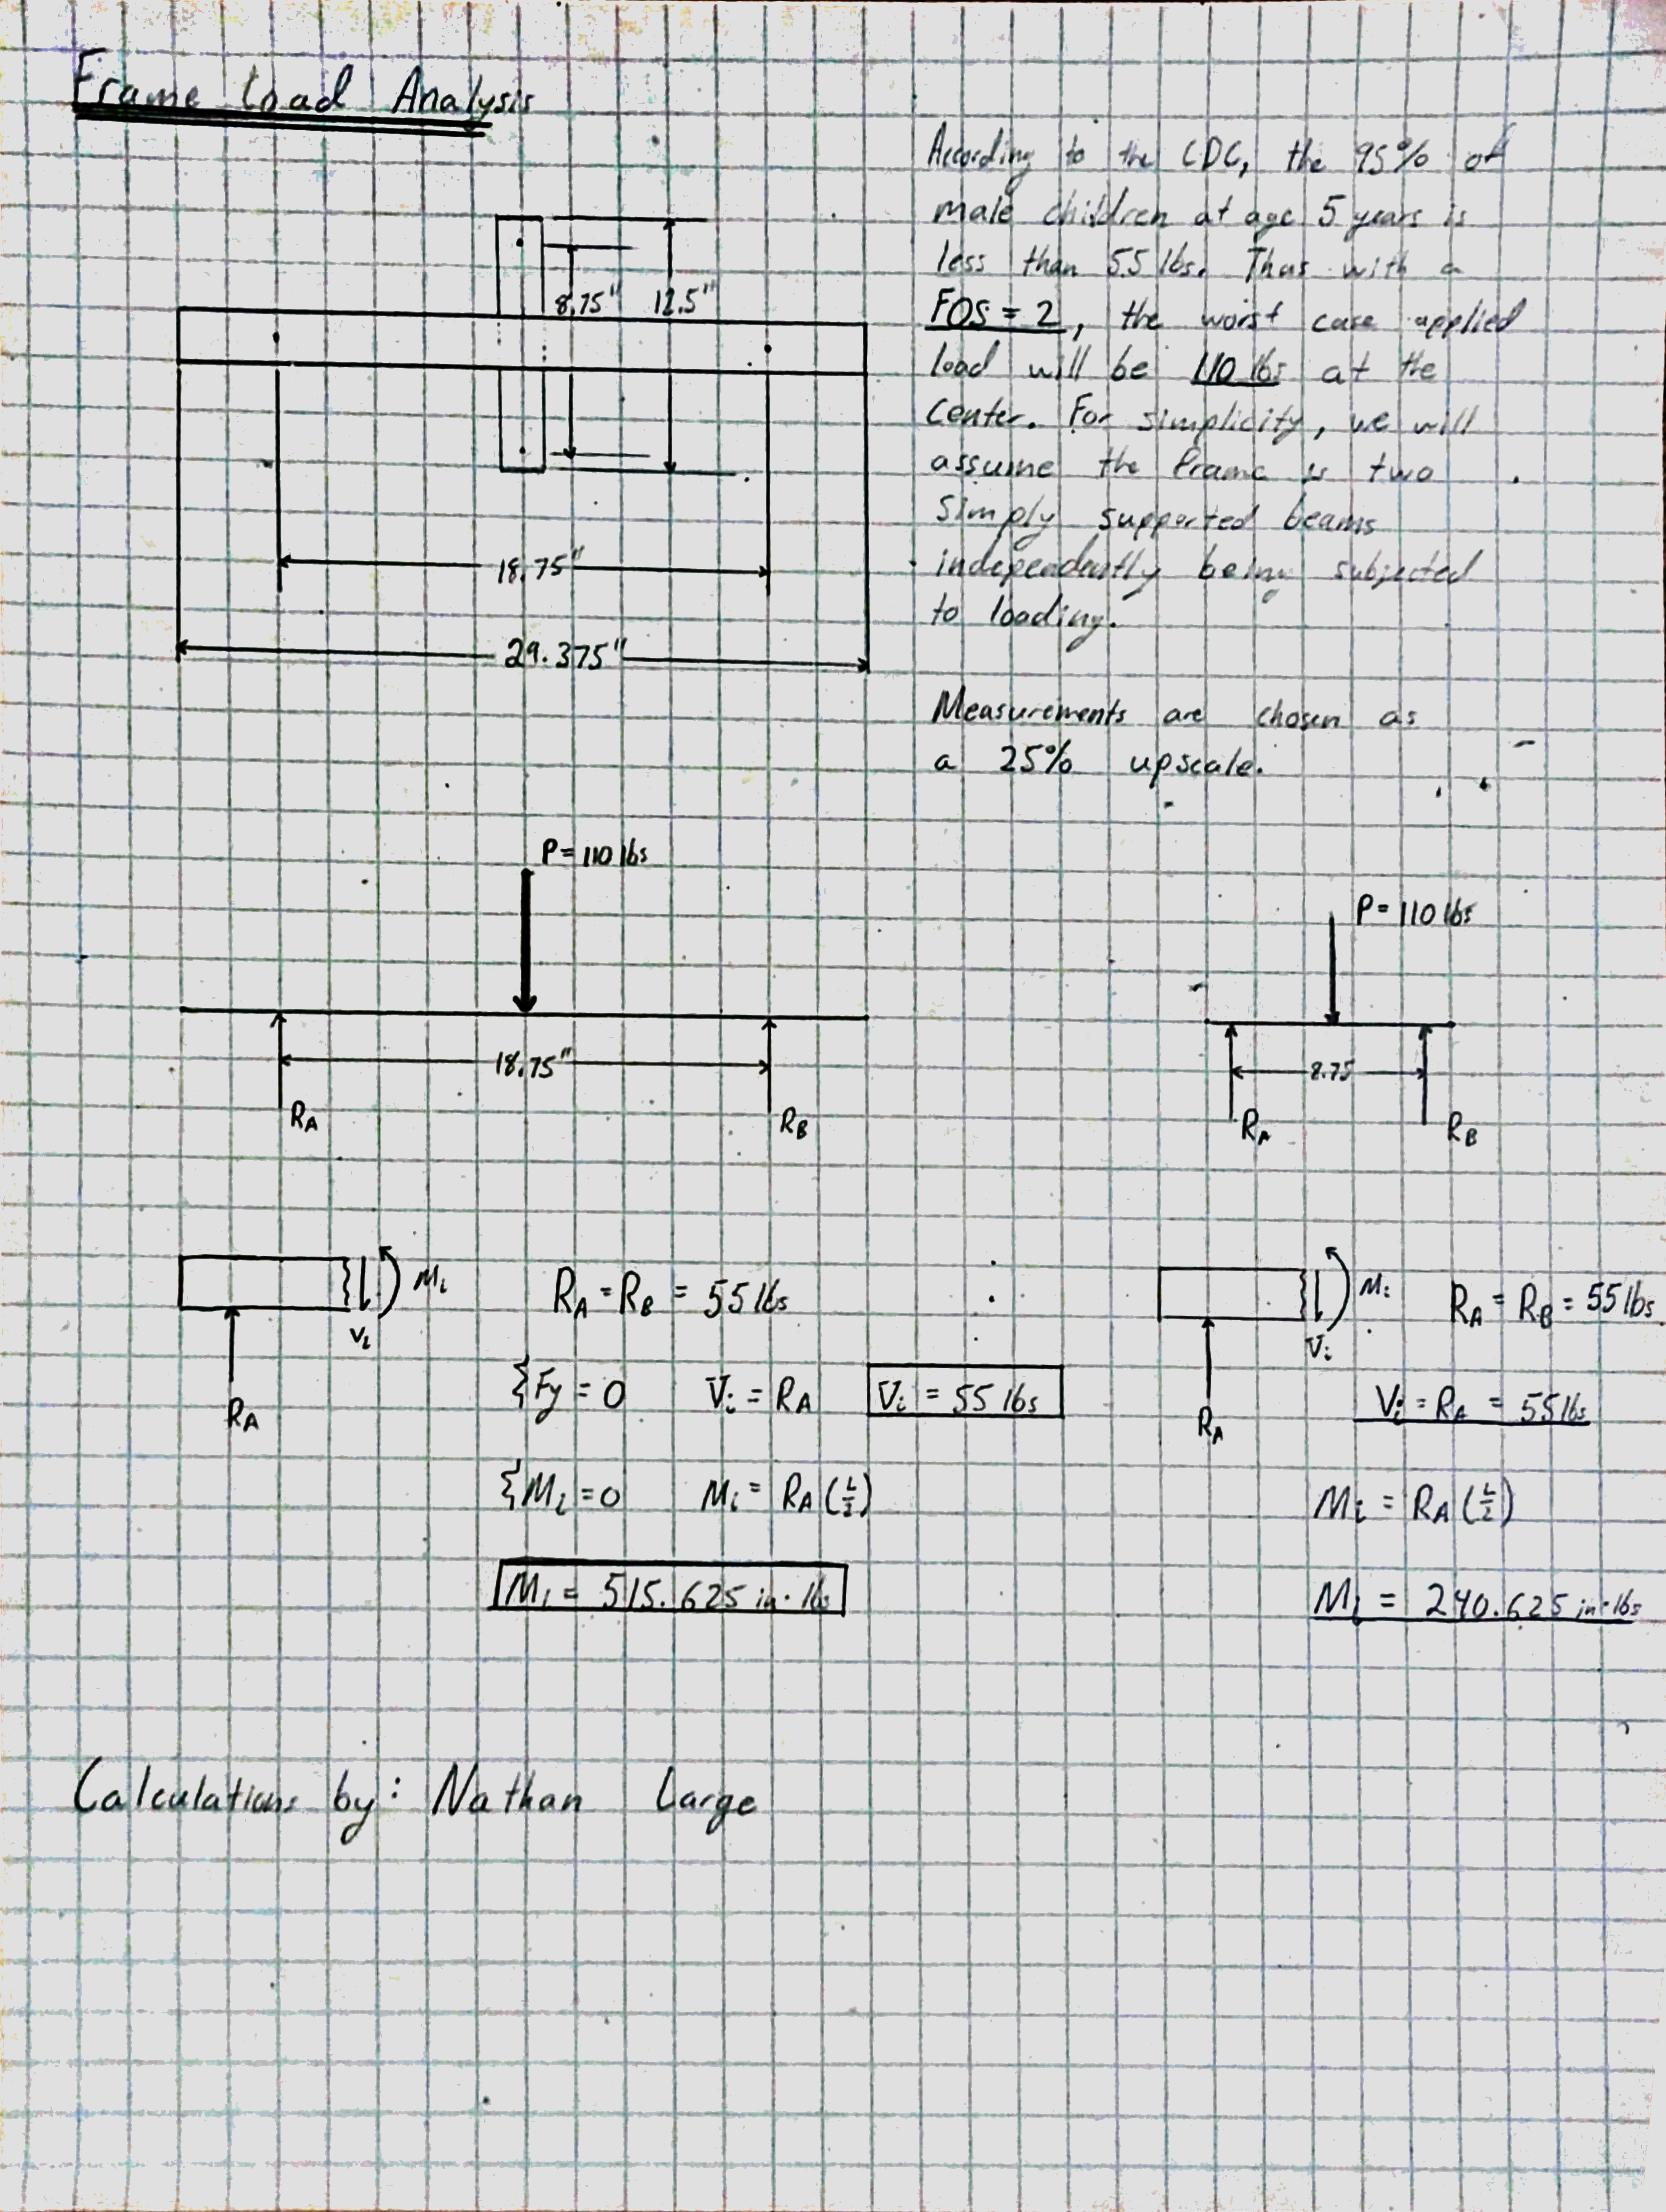 Frame Load Analysis
According to the CDC, the 95% of
male children at age 5 years is
less than 55 lbs. Thus with a
FOS = 2, the worst case applied
load will be 110 lbs at the
center. For simplicity, we will
assume the frame is two
simply supported beams
independently being subjected
to loading.
Measurements are chosen as
a 25% upscale.
8.75" 12.5"
18.75"
29.375"
P = 110 lbs
18.75"
RA RB
P = 110 lbs
8.75
RA RB
Mi
Vi
RA
RA = RB = 55 lbs
ΣFy = 0 Vi = RA Vi = 55 lbs
ΣMi = 0 Mi = RA (L/2)
Mi = 515.625 in·lbs
Mi
Vi
RA
RA = RB = 55 lbs
Vi = RA = 55 lbs
Mi = RA (L/2)
Mi = 240.625 in·lbs
Calculations by: Nathan Large